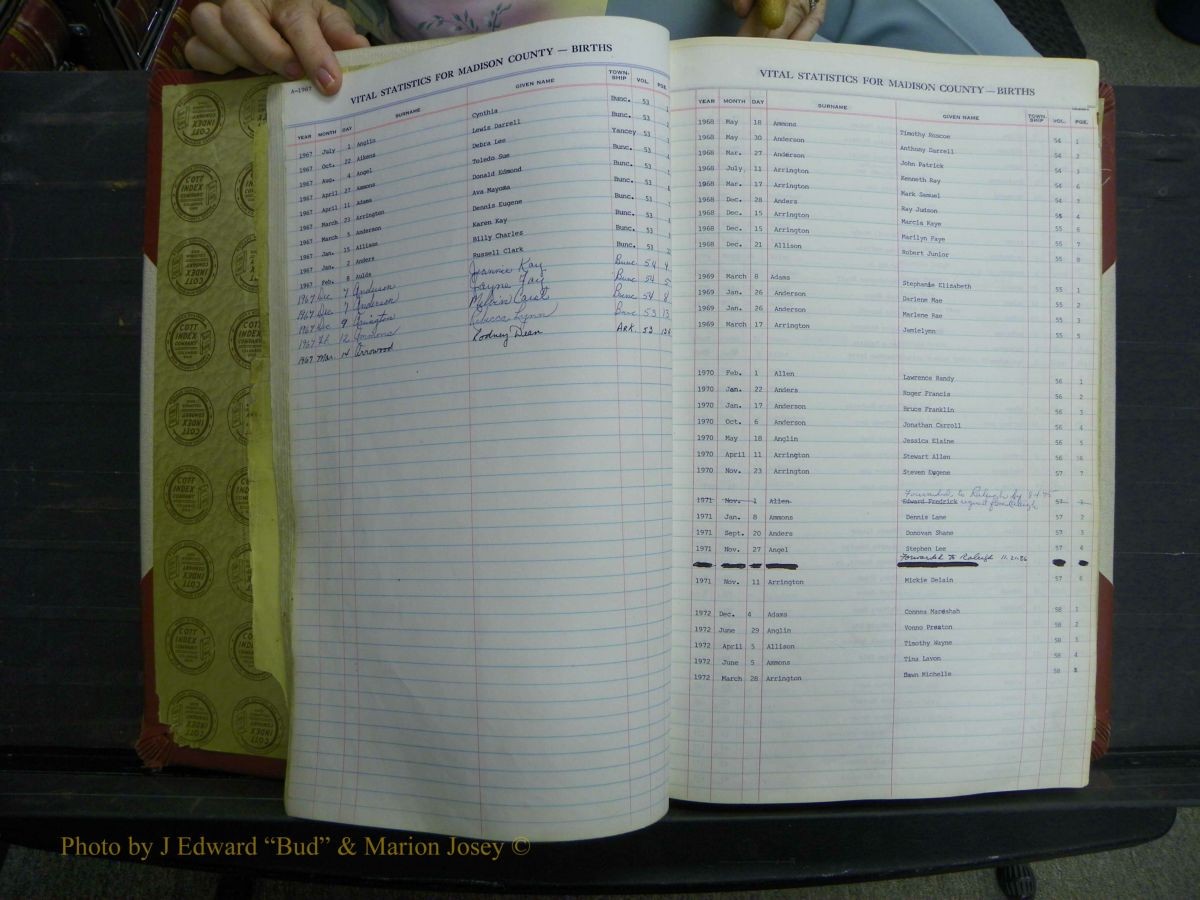 A-1967
VITAL STATISTICS FOR MADISON COUNTY — BIRTHS
YEAR MONTH DAY SURNAME GIVEN NAME TOWN-SHIP VOL. PGE.
1967 July 1 Anglin Cynthia Bunc. 53
1967 Oct. 22 Aikens Lewis Darrell Bunc. 53
1967 Aug. 4 Angel Debra Lee Yancey 53
1967 April 27 Ammons Toledo Sue Bunc. 53
1967 April 11 Adams Donald Edmond Bunc. 53
1967 March 23 Arrington Ava Mayoma Bunc. 53
1967 March 5 Anderson Dennis Eugene Bunc. 53
1967 Jan. 15 Allison Karen Kay Bunc. 53
1967 Jan. 2 Anders Billy Charles Bunc. 53
1967 Feb. 8 Aulds Russell Clark Bunc. 53
1967 Dec 7 Anderson Jeannie Kay Bunc 54 4
1967 Dec 7 Anderson Jayne Fay Bunc 54 5
1967 Dec 9 Arrington Melvin Bunc 54 8
1967 Feb. 12 Ammons Rebecca Lynn Bunc 53 13
1967 Mar. 14 Arrowood Rodney Dean ARK. 53
VITAL STATISTICS FOR MADISON COUNTY — BIRTHS
YEAR MONTH DAY SURNAME GIVEN NAME TOWN-SHIP VOL. PGE.
1968 May 18 Ammons Timothy Roscoe 54 1
1968 May 30 Anderson Anthony Darrell 54 2
1968 Mar. 27 Anderson John Patrick 54 3
1968 July 11 Arrington Kenneth Ray 54 6
1968 Mar. 17 Arrington Mark Samuel 54 3
1968 Dec. 28 Anders Ray Judson 55 4
1968 Dec. 15 Arrington Marcia Kaye 55 6
1968 Dec. 15 Arrington Marilyn Faye 55 7
1968 Dec. 21 Allison Robert Junior 55 8
1969 March 8 Adams Stephanie Elizabeth 55 1
1969 Jan. 26 Anderson Darlene Mae 55 2
1969 Jan. 26 Anderson Marlene Rae 55 3
1969 March 17 Arrington Jamielynn 55 5
1970 Feb. 1 Allen Lawrence Randy 56 1
1970 Jan. 22 Anders Roger Francis 56 2
1970 Jan. 17 Anderson Bruce Franklin 56 3
1970 Oct. 6 Anderson Jonathan Carroll 56 4
1970 May 18 Anglin Jessica Elaine 56 5
1970 April 11 Arrington Stewart Allen 56
1970 Nov. 23 Arrington Steven Eugene 57 7
Forwarded to Raleigh by
1971 Nov. 1 Allen Edward Fredrick request from Raleigh 57 1
1971 Jan. 8 Ammons Dennis Lane 57 2
1971 Sept. 20 Anders Donovan Shane 57 3
1971 Nov. 27 Angel Stephen Lee 57 4
Forwarded to Raleigh 11.21.86
1971 Nov. 11 Arrington Mickie Delain 57 6
1972 Dec. 4 Adams Connea Mareshah 58 1
1972 June 29 Anglin Vonno Preston 58 2
1972 April 5 Allison Timothy Wayne 58 3
1972 June 5 Ammons Tina Lavon 58 4
1972 March 28 Arrington Dawn Michelle 58 5
COTT INDEX COMPANY
Photo by J Edward “Bud” & Marion Josey ©